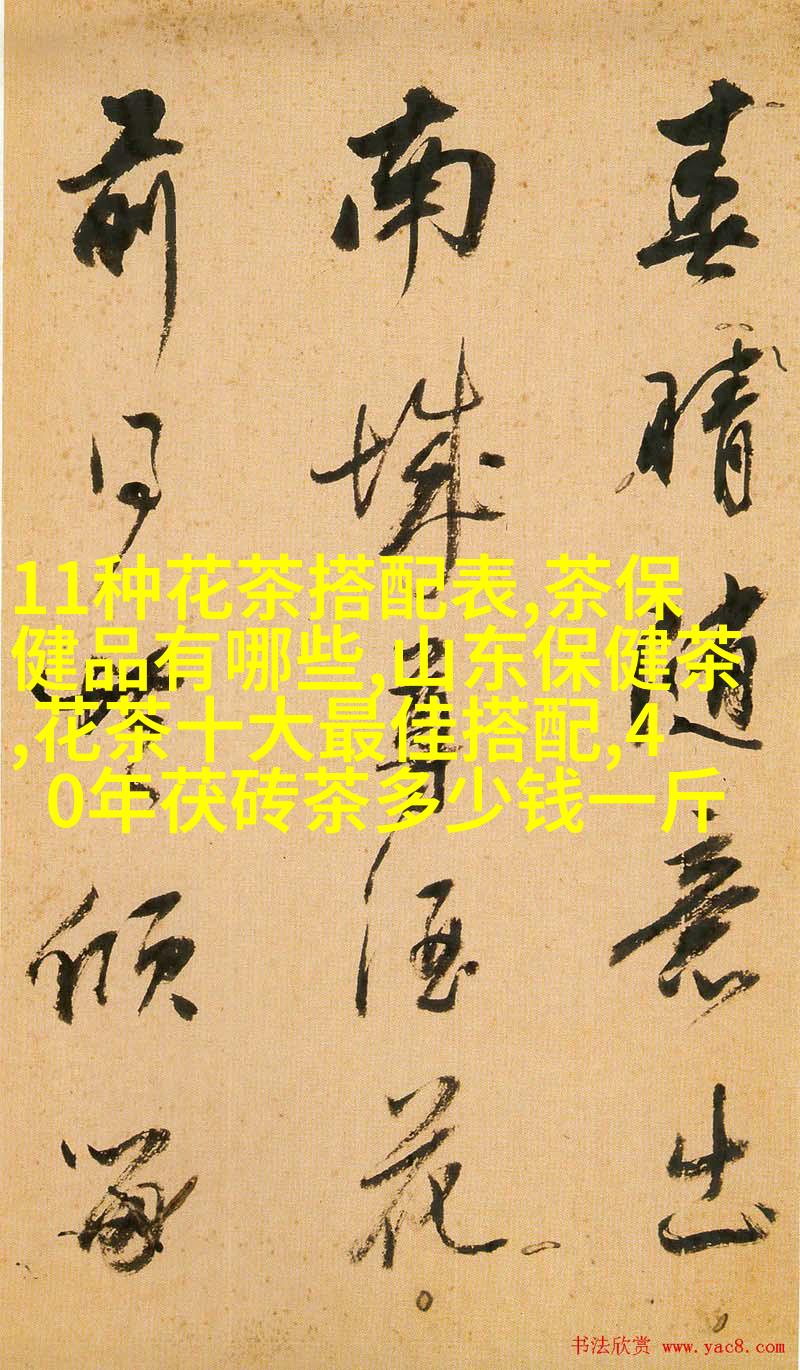 春晴随意出
南城尊酒花
前同倾
11种花茶搭配表,茶保
健品有哪些,山东保健茶
,花茶十大最佳搭配,4
0年茯砖茶多少钱一斤
书法欣赏 www.yac8.com